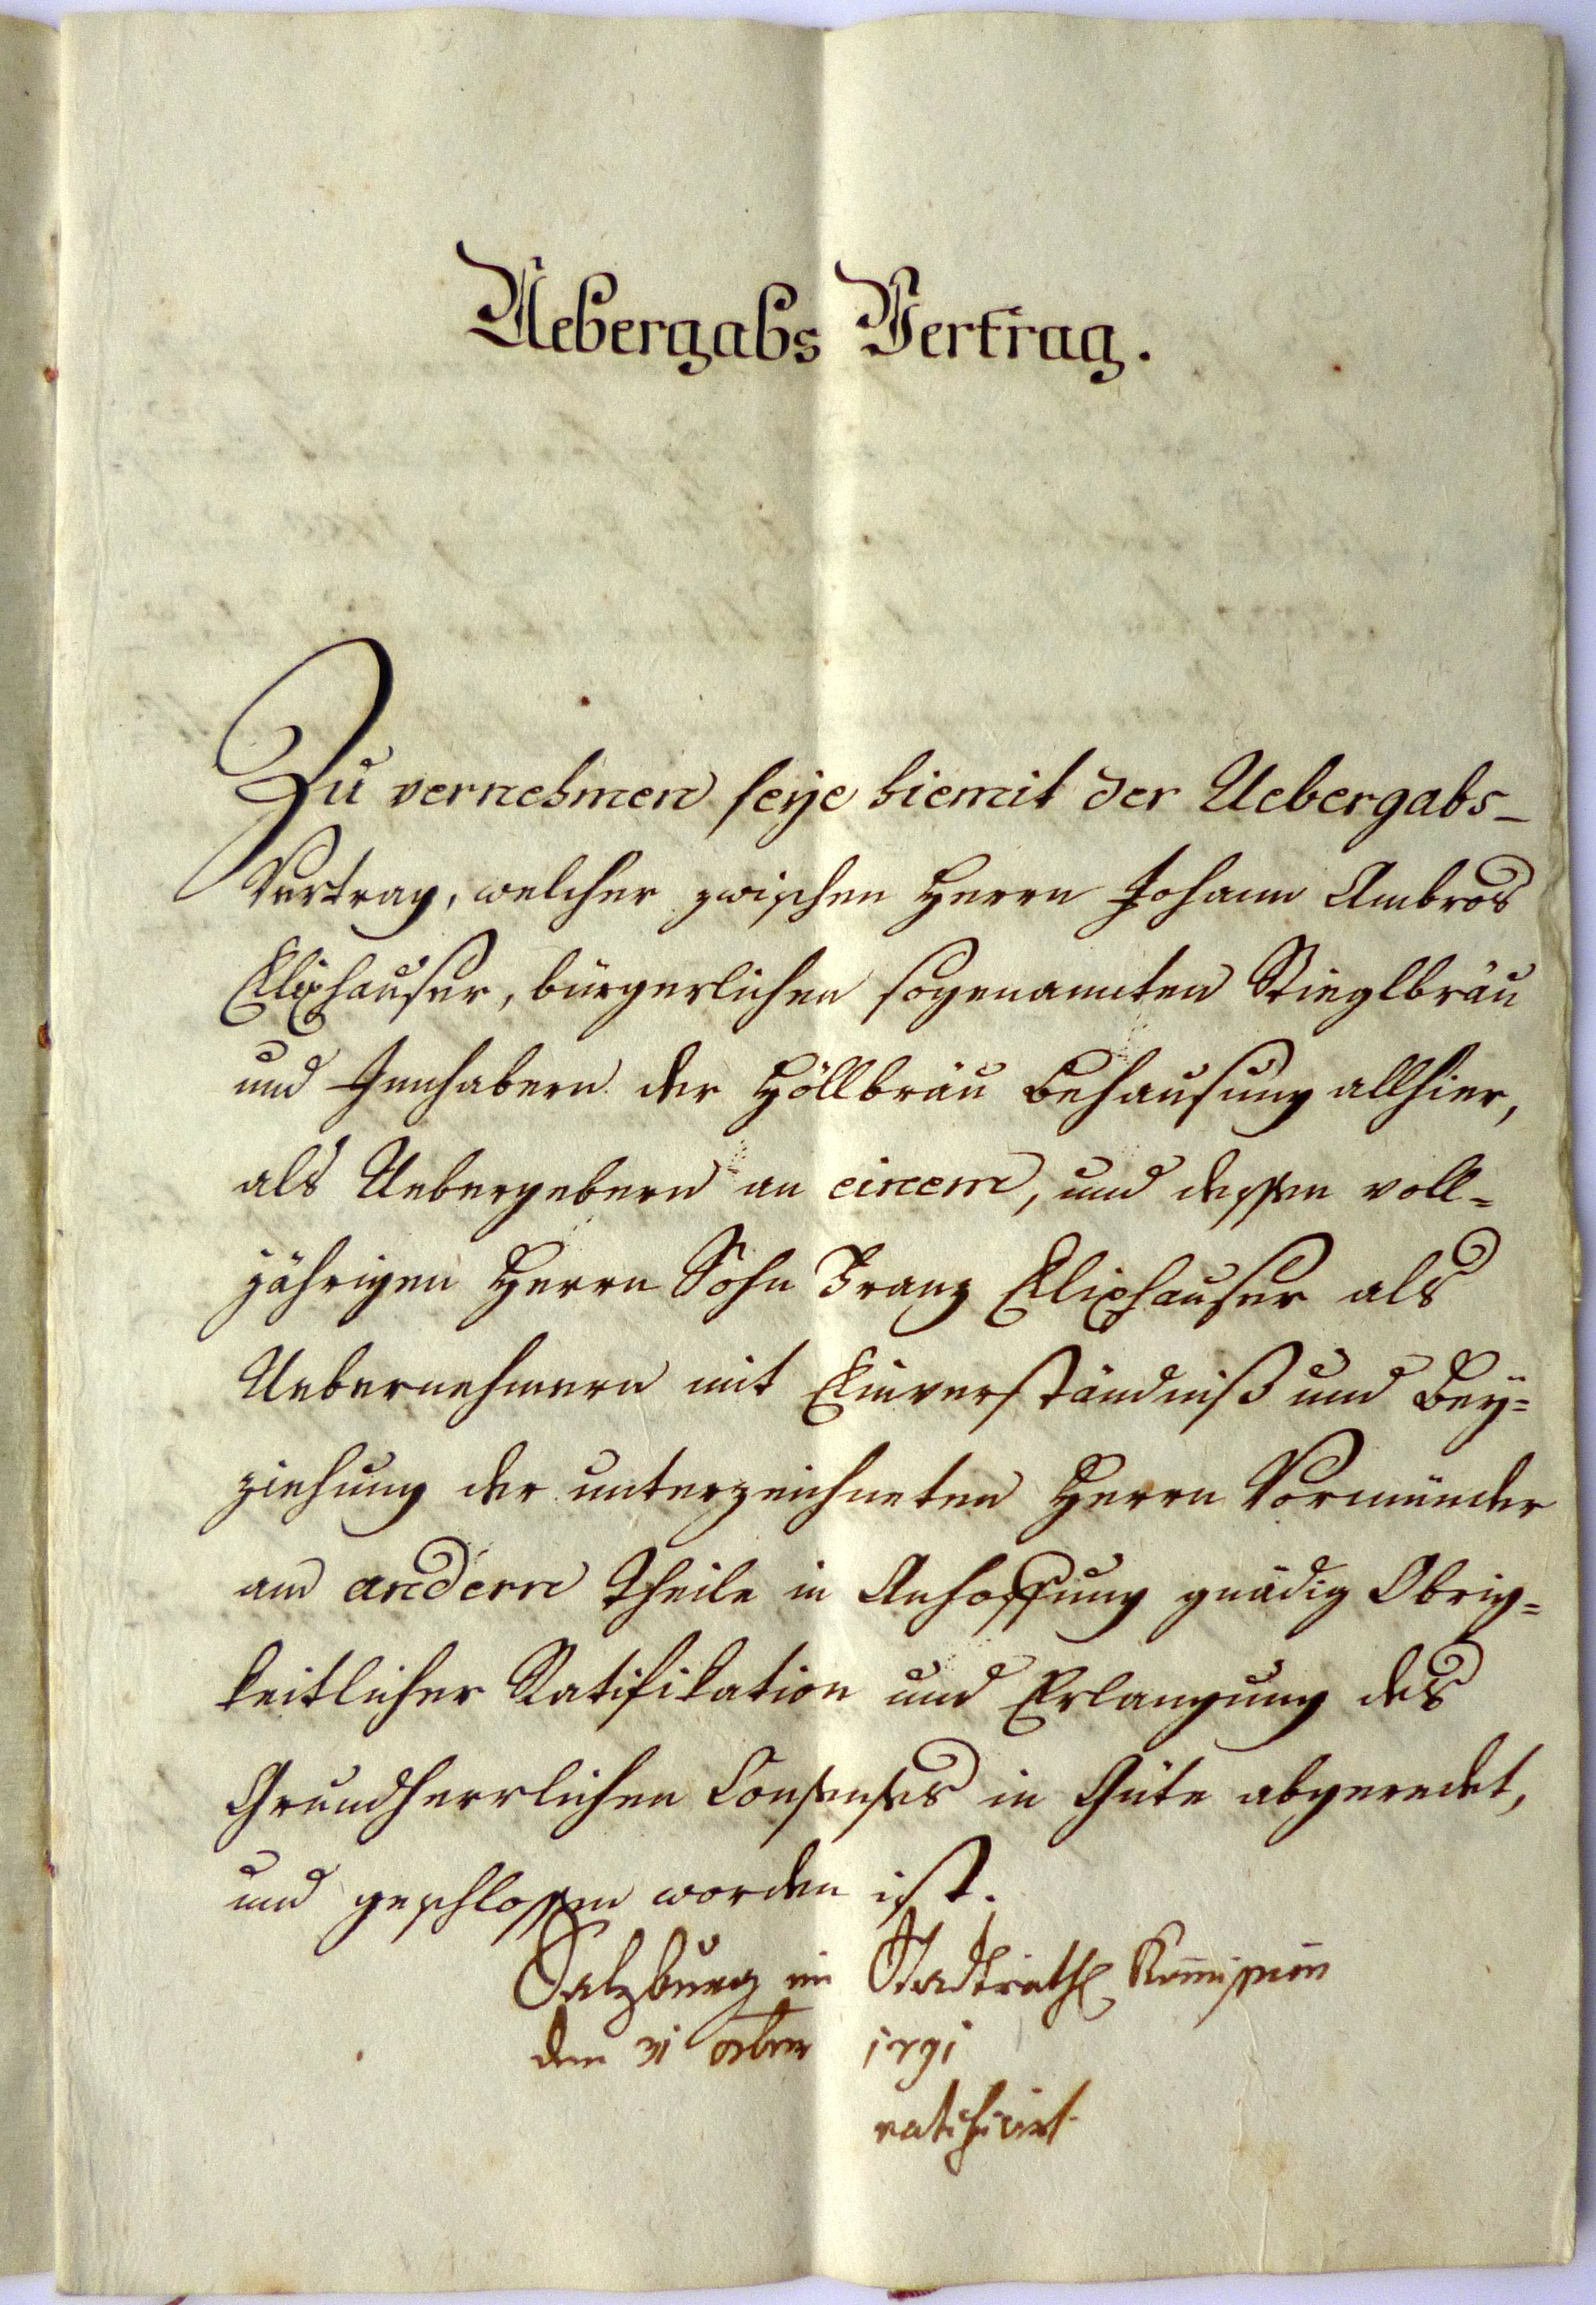 Uebergabs Vertrag.
Zu vernehmen seye hiemit der Uebergabs-
Vertrag, welcher zwischen Herrn Johann Ambros
Elixhauser, bürgerlichen sogenannten Stieglbräu
und Innhabern der Höllbräu Behausung allhier,
als Uebergebern an einem, und dessen voll=
jährigen Herrn Sohn Franz Elixhauser als
Uebernehmern mit Einverständniß und Bey=
ziehung der unterzeichneten Herrn Vormünder
am andern Theile in Anhoffung gnädig Obrig=
keitlicher Ratifikation und Erlangung des
Grundherrlichen Consenses in Güte abgeredet,
und geschlossen worden ist.
Salzburg im Stadtrath
den 31 1791
ratificirt